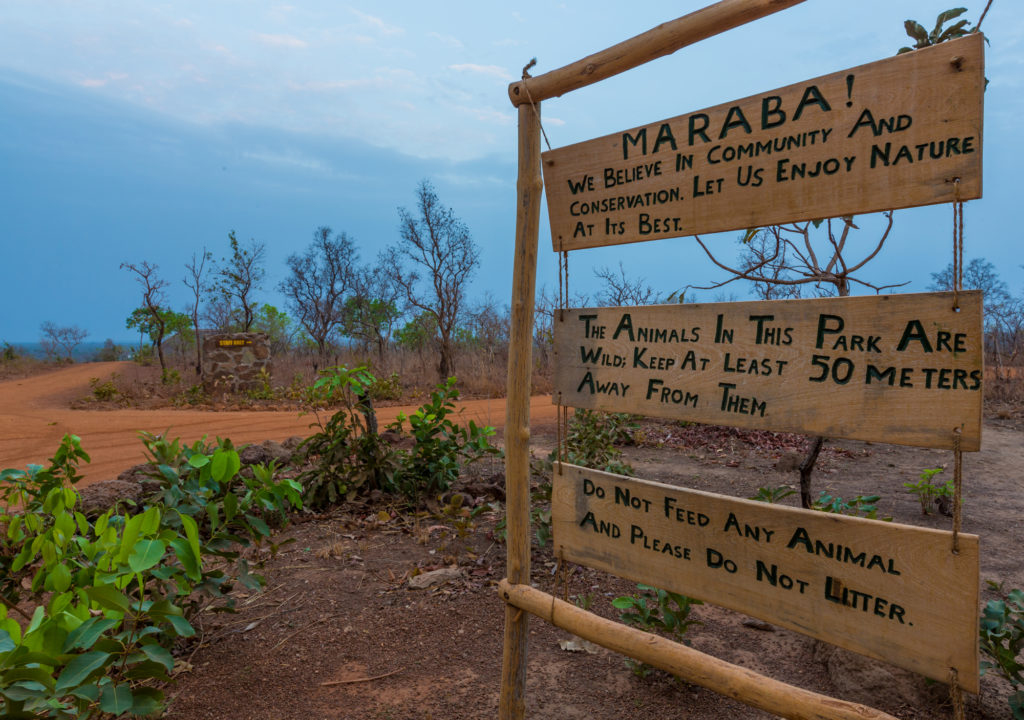 MARABA!
WE BELIEVE IN COMMUNITY AND
CONSERVATION. LET US ENJOY NATURE
AT ITS BEST.
THE ANIMALS IN THIS PARK ARE
WILD; KEEP AT LEAST 50 METERS
AWAY FROM THEM.
DO NOT FEED ANY ANIMAL
AND PLEASE DO NOT LITTER.
STAFF ONLY